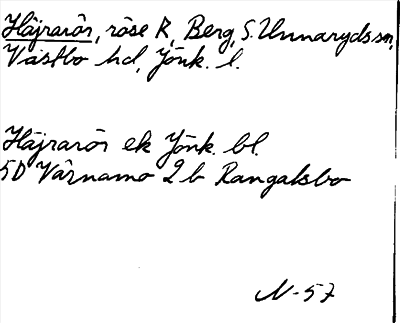 Häjrarör, röse R, Berg, S. Unnaryds sn,
Västbo hd, Jönk. l.
Häjrarör ek Jönk. bl.
5D Värnamo 2b Rangalsbo
N-57